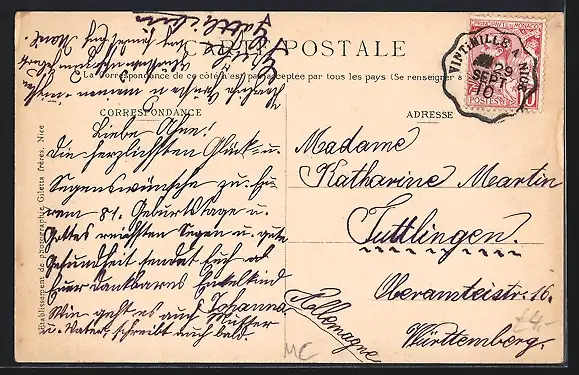 CARTE POSTALE
La Correspondance de ce côté n'est pas acceptée par tous les pays (Se renseigner à
CORRESPONDANCE
ADRESSE
Liebe Ahne!
Die herzlichsten Glück- u.
Segenswünsche zu Eu-
rem 81. Geburtstage u.
Gottes reichsten Segen u. gute
Gesundheit sendet Euch als
Euer dankbares Enkelkind
Johanna.
Wie geht es auch Mutter
u. Vater, schreibt auch bald.
Madame
Katharine Martin
Tuttlingen.
Oberamteistr. 16.
Württemberg.
Allemagne
VINTIMILLE A NICE
29
SEPT
10
PRINCIPAUTÉ DE MONACO
POSTES
10
Etablissement de photographie, Giletta frères, Nice
MC
£4,-